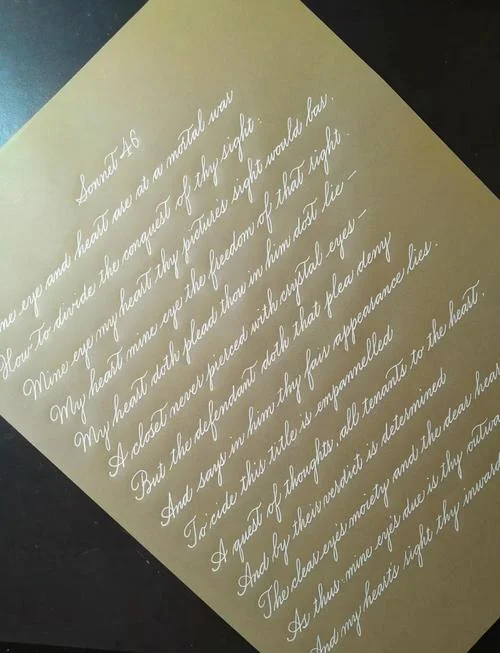 Sonnet 46
ne eye and heart are at a mortal war
How to divide the conquest of thy sight:
Mine eye my heart thy picture's sight would bar.
My heart mine eye the freedom of that right.
My heart doth plead thou in him dost lie –
A closet never pierced with crystal eyes –
But the defendant doth that plea deny
And says in him thy fair appearance lies.
To 'cide this title is empannelled
A quest of thoughts, all tenants to the heart.
And by their verdict is determined
The clear eye's moiety and the dear hear
As thus: mine ey's due is thy outwa
And my heart's right thy inward